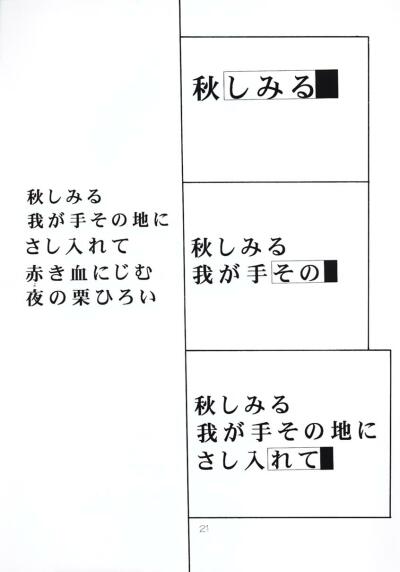 秋しみる
我が手その地に
さし入れて
赤き血にじむ
夜の栗ひろい
秋しみる
秋しみる
我が手その
秋しみる
我が手その地に
さし入れて
21